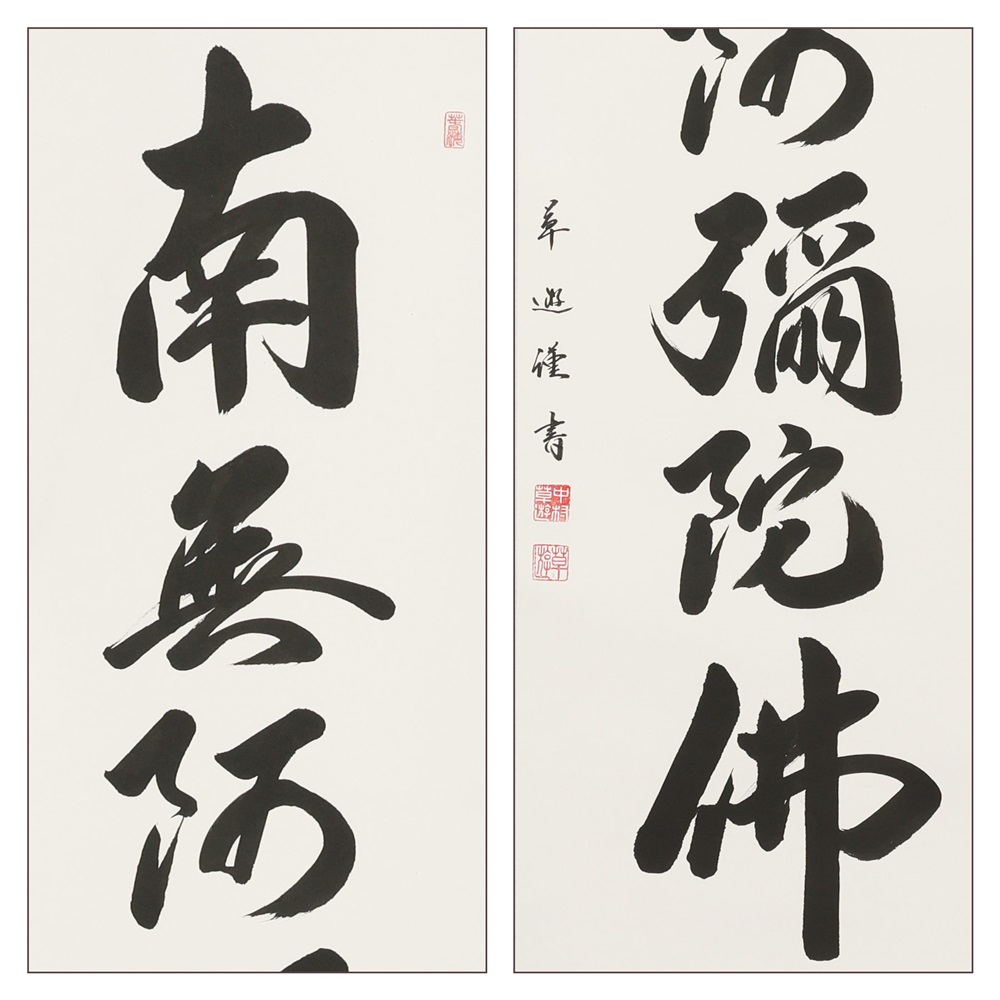 南無阿
阿彌陀佛
草遊謹書
中村草遊
草遊